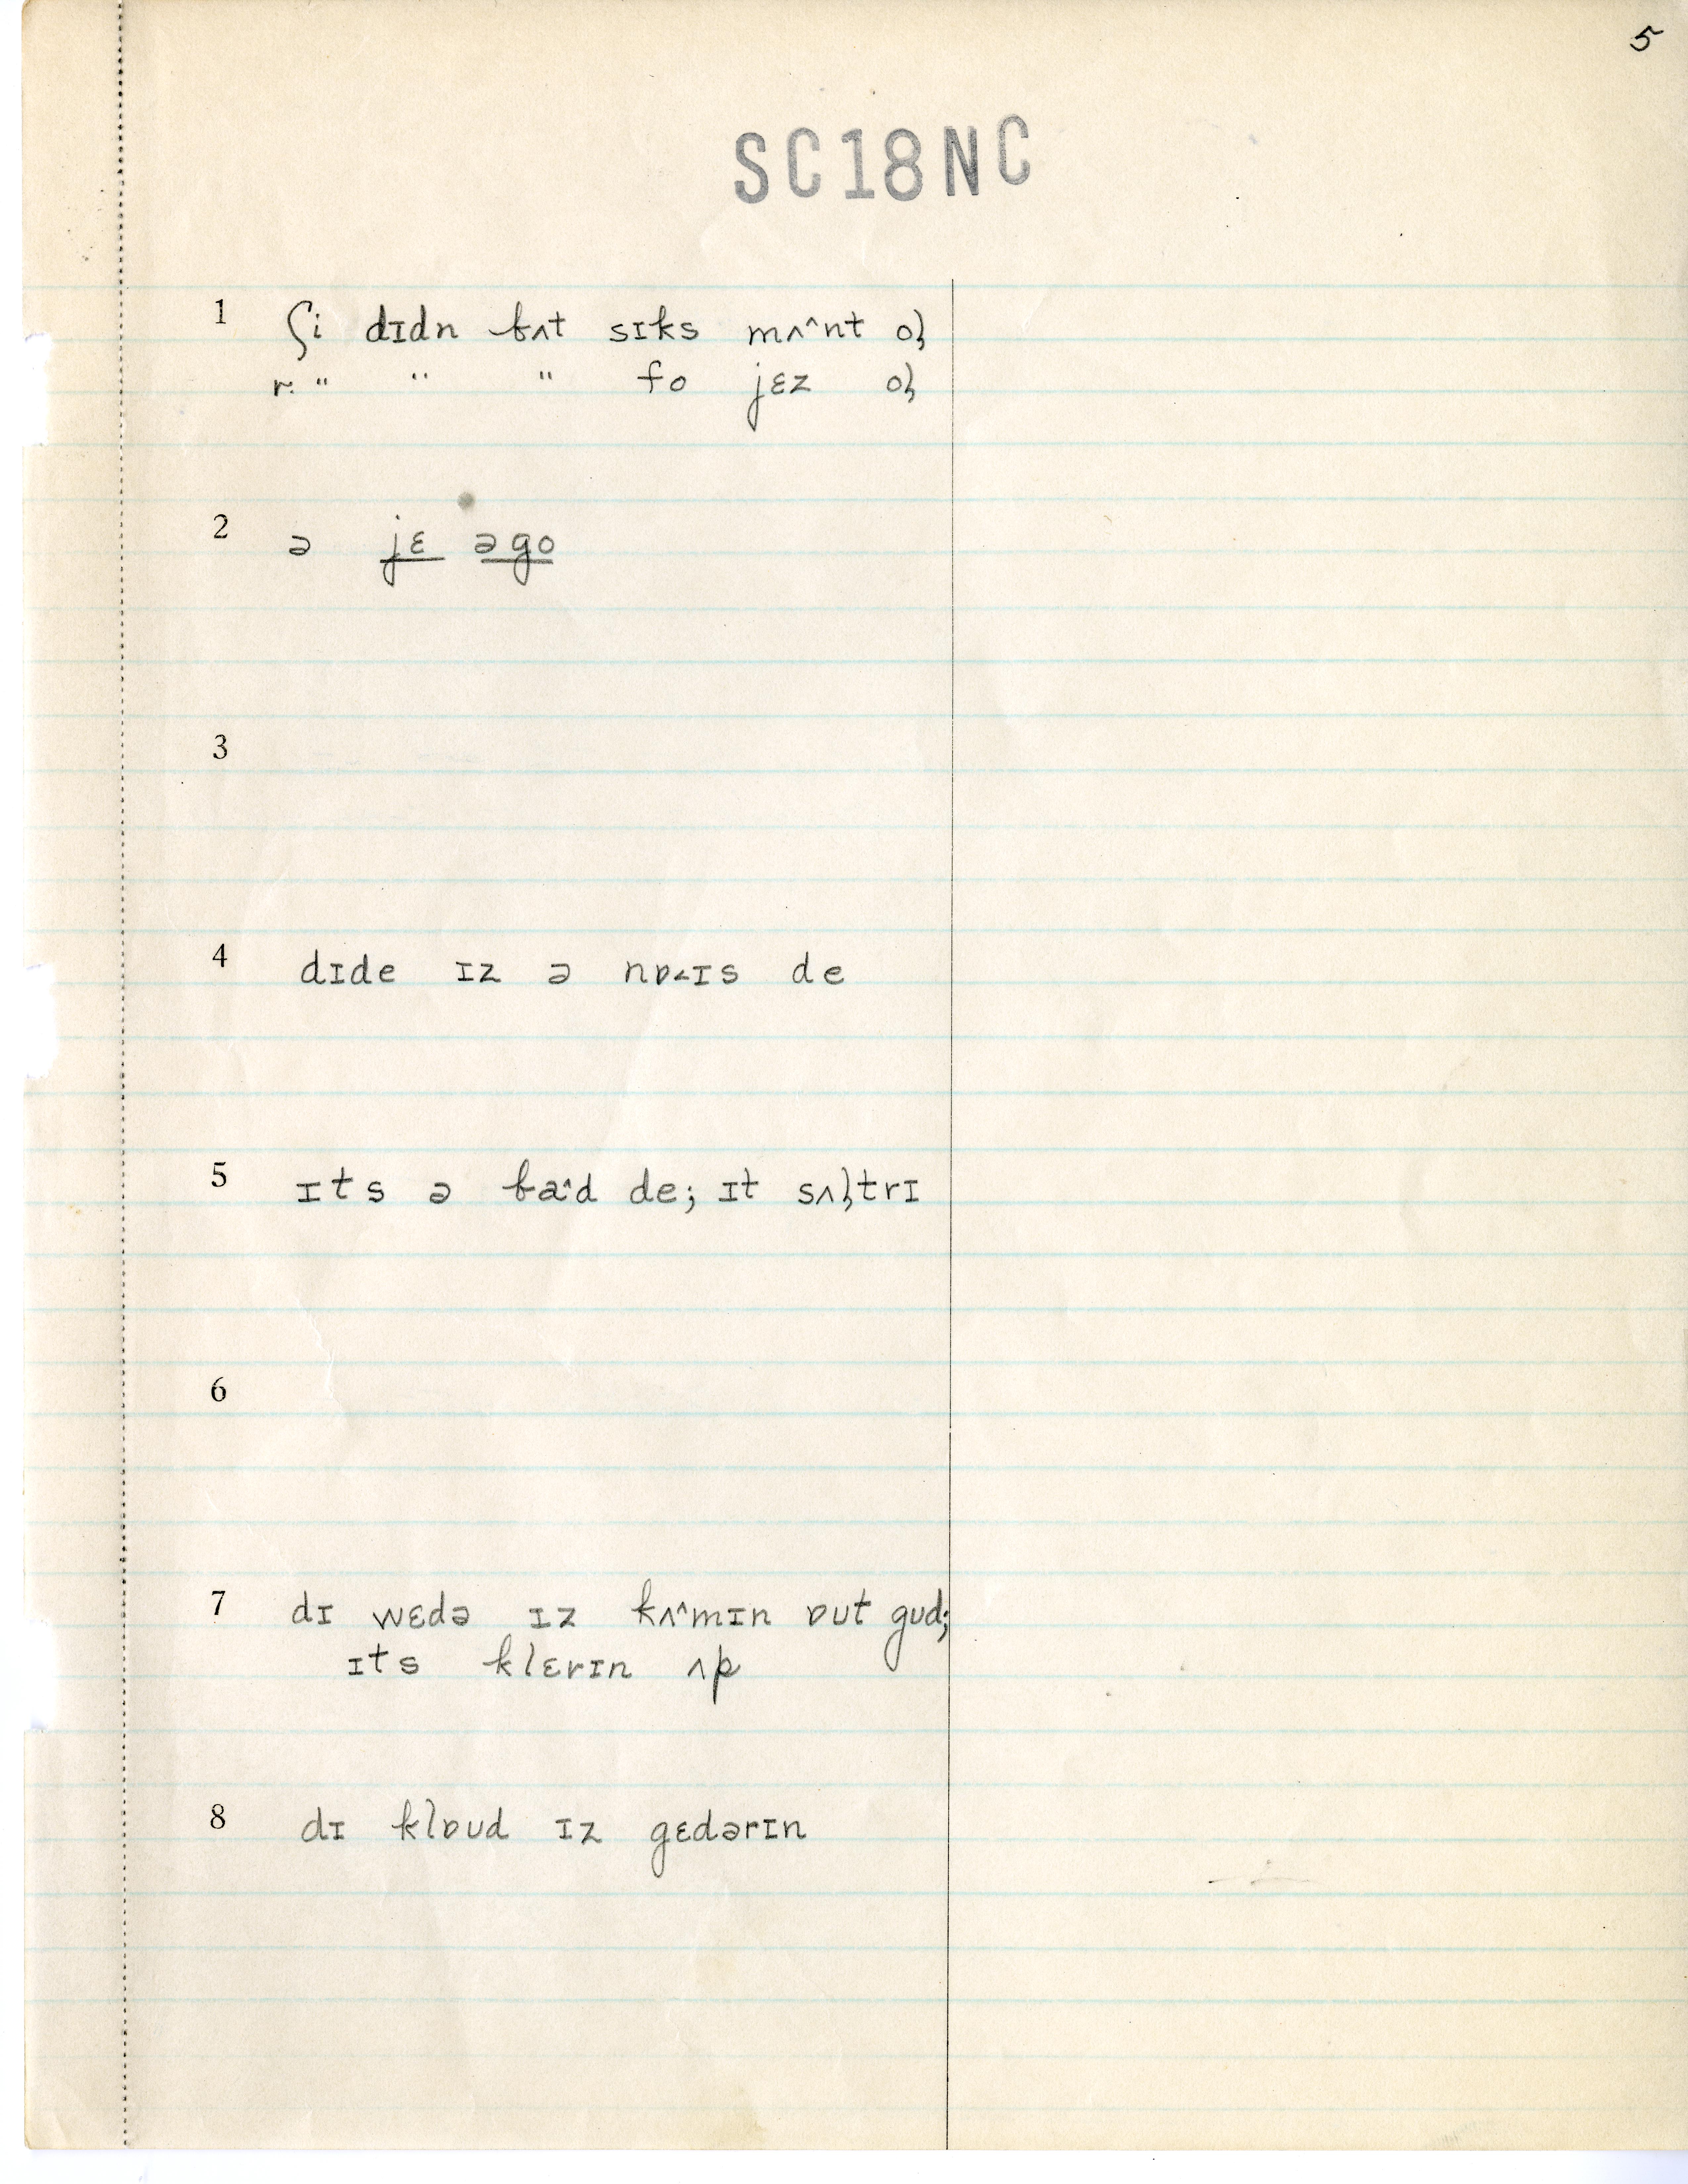 5
SC18NC
1 ʃi dɪdn bʌt sɪks mʌ^nt oɫ
r. " " " fo jɛz oɫ
2 ə jɛ əgo
3
4 dɪde ɪz ə nɒ˂ɪs de
5 ɪts ə baˑd de; ɪt sʌɫtrɪ
6
7 dɪ wɛdə ɪz kʌ^mɪn ɒut gud;
ɪts klɛrɪn ʌp
8 dɪ klɒud ɪz gɛdərɪn